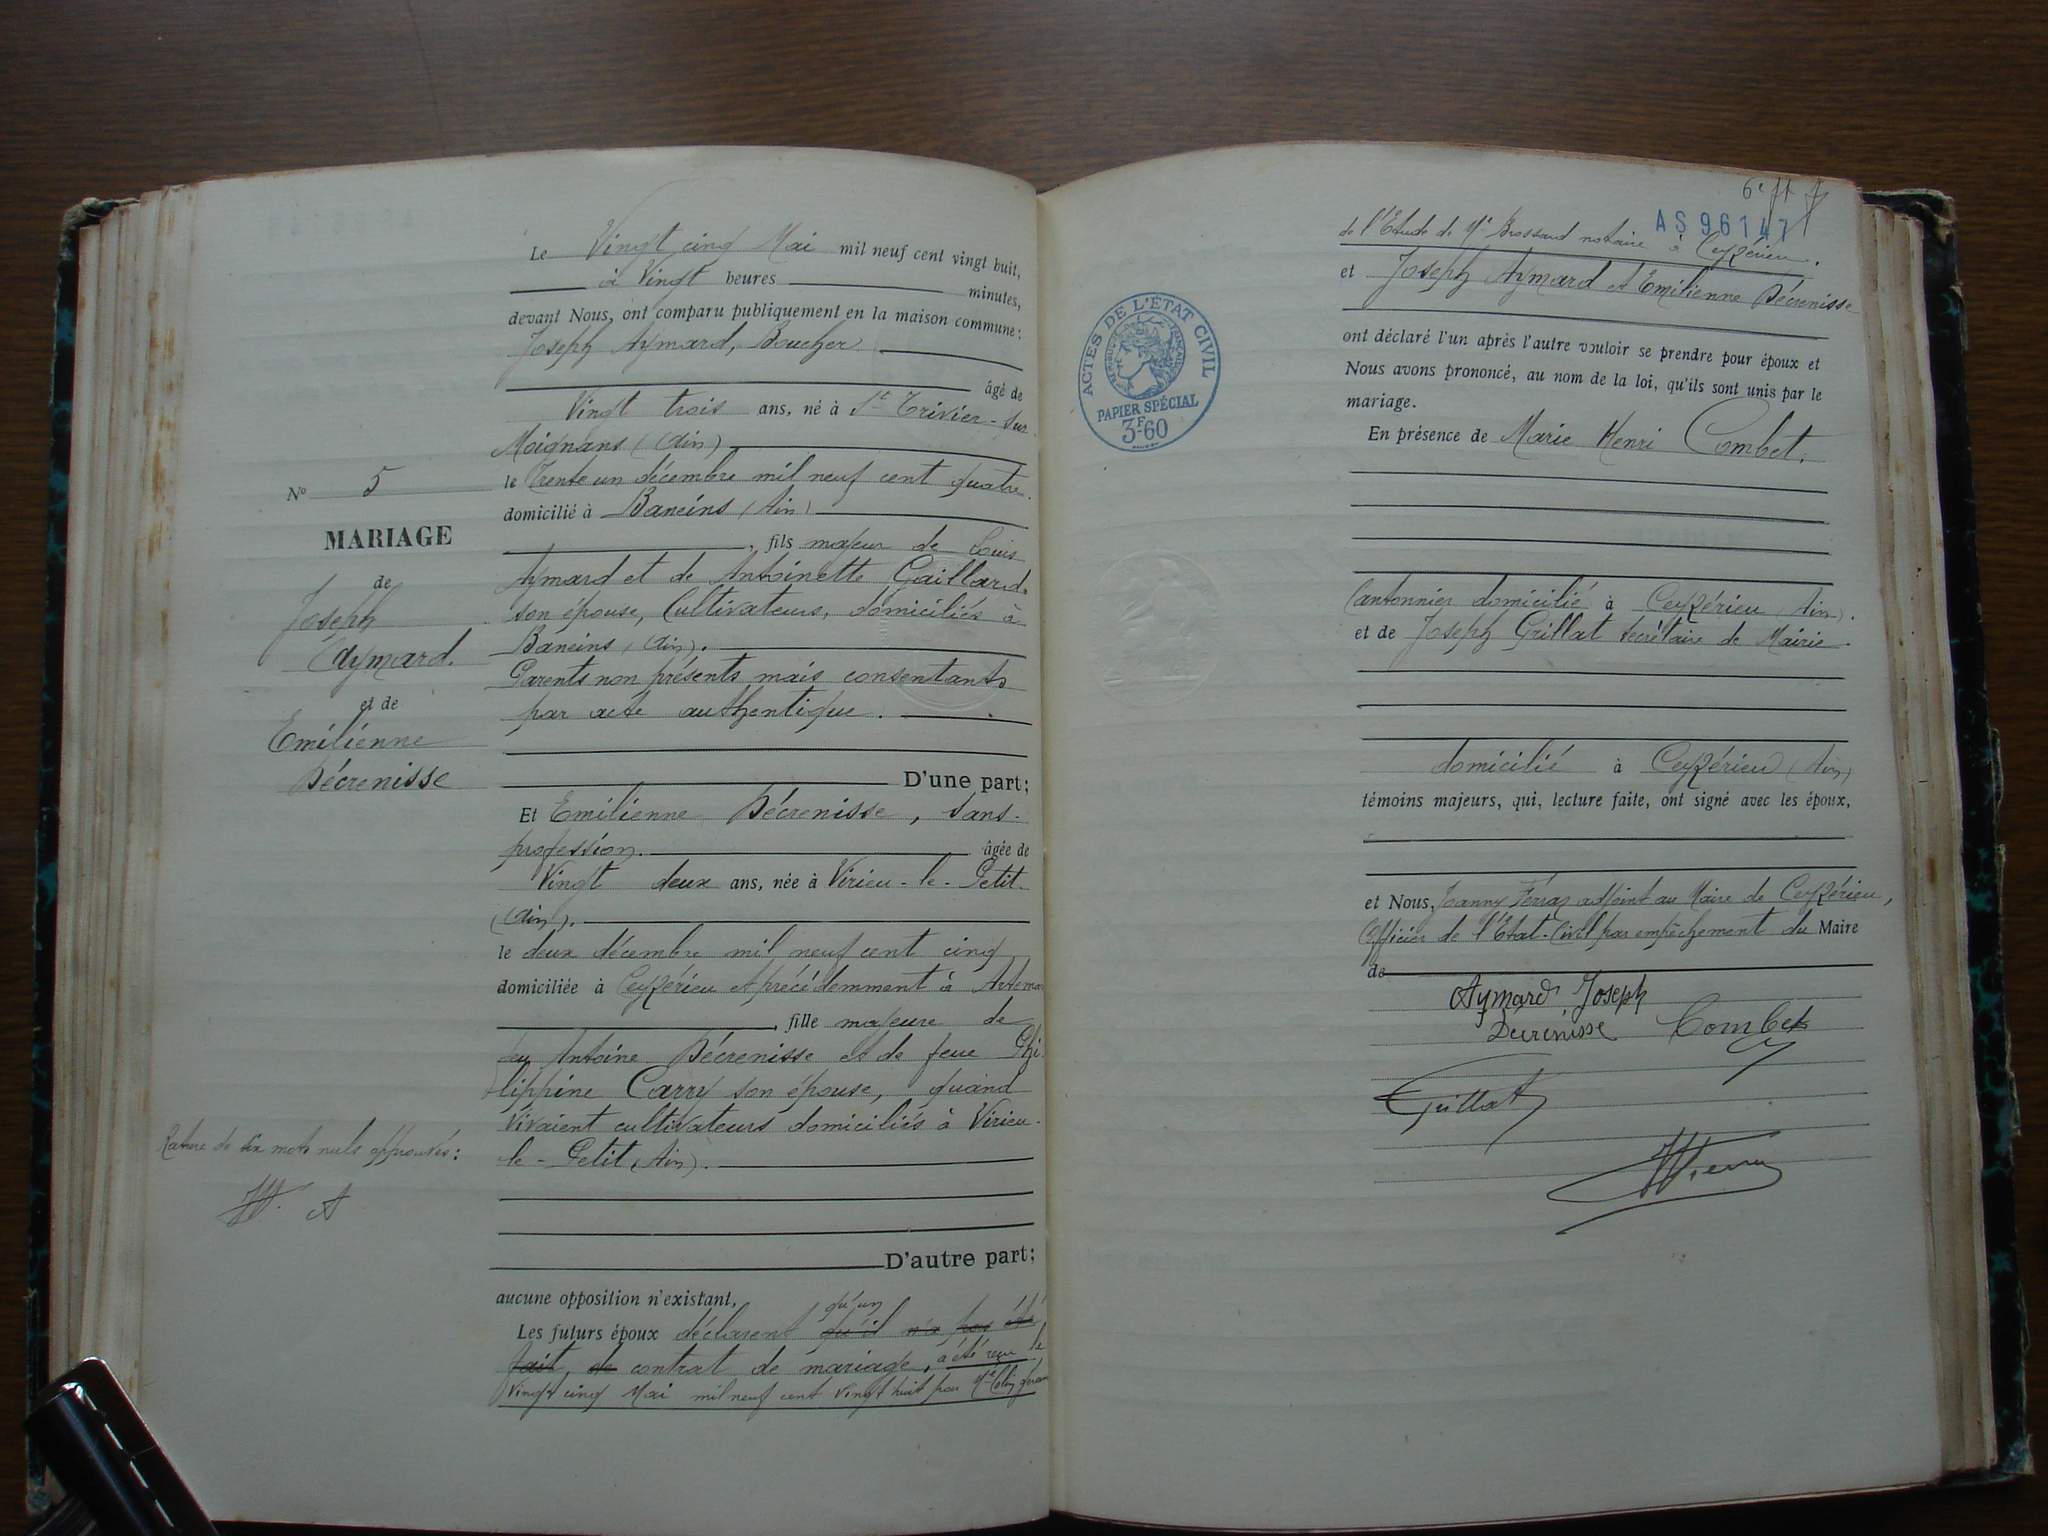 Le Vingt cinq Mai mil neuf cent vingt huit,
à Vingt heures minutes,
devant Nous, ont comparu publiquement en la maison commune:
Joseph Aymard, Boucher
âgé de
Vingt trois ans, né à St Trivier-sur-
Moignans (Ain)
le Trente un décembre mil neuf cent quatre
domicilié à Baneins (Ain)
, fils majeur de Louis
Aymard et de Antoinette Gaillard
son épouse, Cultivateurs, domiciliés à
Baneins (Ain).
Parents non présents mais consentants
par acte authentique.
D'une part;
Et Emilienne Décrenisse, sans-
profession. âgée de
Vingt deux ans, née à Virieu-le-Petit-
(Ain).
le deux décembre mil neuf cent cinq
domiciliée à Ceyzérieu et précédemment à Artema
, fille majeure de
feu Antoine Décrenisse et de feue Phi
lippine Carry son épouse, quand
vivaient cultivateurs domiciliés à Virieu-
le-Petit (Ain).
D'autre part;
aucune opposition n'existant,
qu'un
Les futurs époux déclarent qu'il n'a pas été
fait, de contrat de mariage, a été reçu le
Vingt cinq Mai mil neuf cent vingt huit par Me
No 5
MARIAGE
de
Joseph
Aymard.
et de
Emilienne
Décrenisse
Rature de six mots nuls approuvés:
A
6e ft
AS 96147
de l'Etude de Me Brossard notaire à Ceyzérieu.
et Joseph Aymard et Emilienne Décrenisse
ont déclaré l'un après l'autre vouloir se prendre pour époux et
Nous avons prononcé, au nom de la loi, qu'ils sont unis par le
mariage.
En présence de Marie Henri Combet,
Cantonnier domicilié à Ceyzérieu (Ain).
et de Joseph Grillat secrétaire de Mairie.
domicilié à Ceyzérieu (Ain)
témoins majeurs, qui, lecture faite, ont signé avec les époux,
et Nous, Joanny Ferraz adjoint au Maire de Ceyzérieu,
Officier de l'Etat-Civil par empêchement du Maire
de
Aymard Joseph
Décrenisse Combet
Grillat
ACTES DE L'ÉTAT CIVIL
RÉPUBLIQUE FRANÇAISE
PAPIER SPÉCIAL
3F60